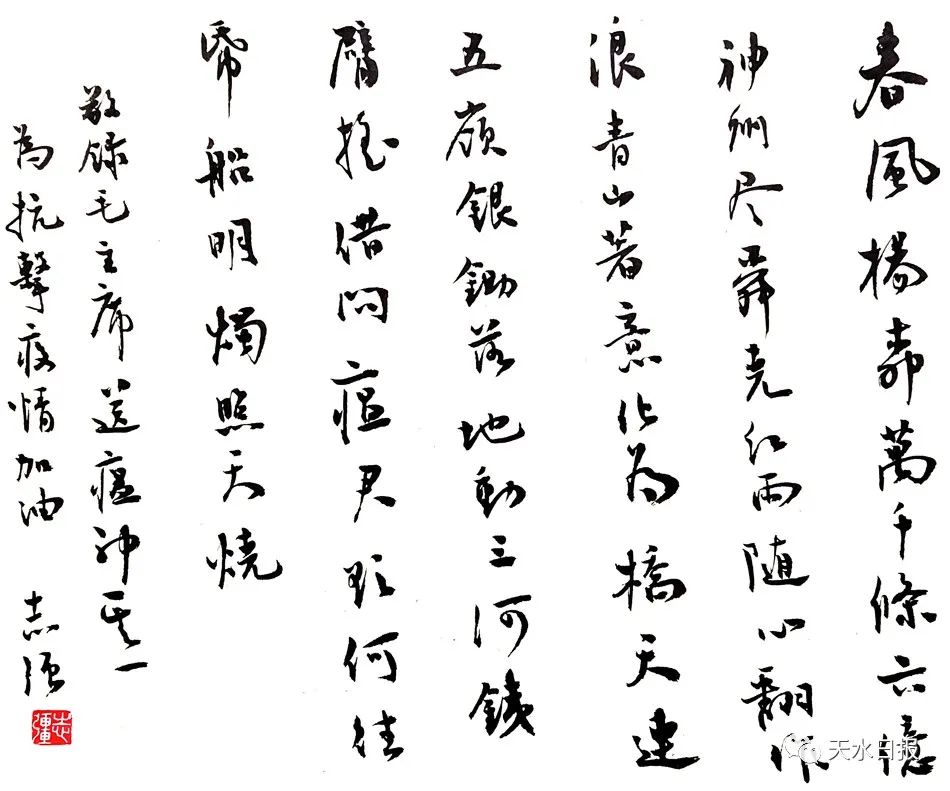 春風楊柳萬千條六億
神州尽舜堯红雨随心翻作
浪青山著意化为橋天連
五嶺銀鋤落地動三河鐵
臂摇借问瘟君欲何往
帋船明燭照天烧
敬録毛主席送瘟神其一
為抗擊疫情加油 志强
志強
天水日报